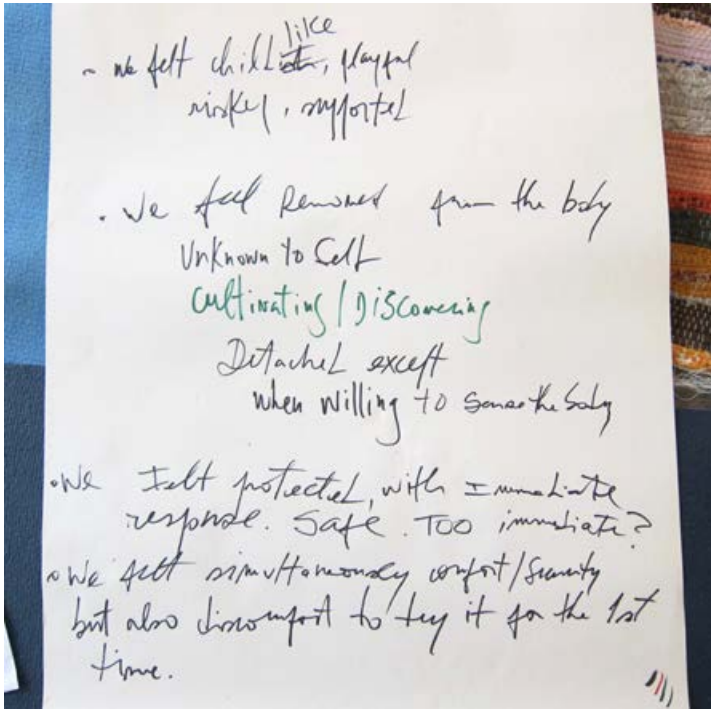 like
~ we felt child, playful
risky, supported
. We feel Removed from the body
Unknown to Self
Cultivating / Discovering
Detached except
when willing to sense the body
. We Felt protected, with Immediate
response. Safe. Too immediate?
. We felt simultaneously comfort/Security
but also discomfort to try it for the 1st
time.